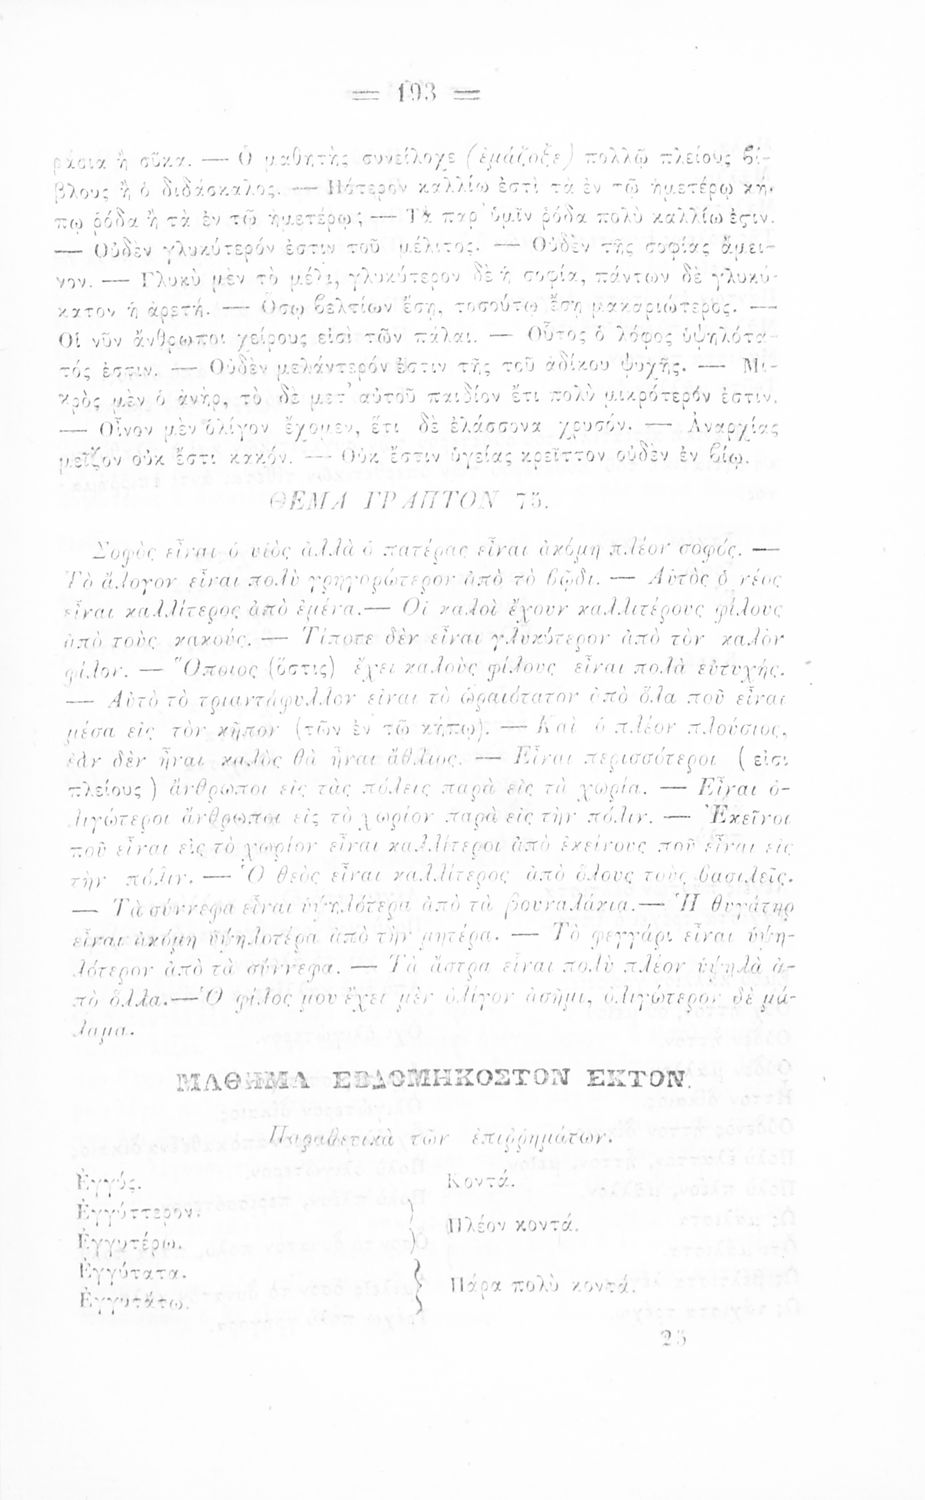 = 193 =
ράσια ἢ σῦκα. — Ὁ μαθητὴς συνείλοχε (ἐμάζοξε) πολλῷ πλείους βί-
βλους ἢ ὁ διδάσκαλος. — Πότερον καλλίω ἐστὶ τὰ ἐν τῷ ἡμετέρῳ κή-
πῳ ῥόδα ἢ τὰ ἐν τῷ ὑμετέρῳ; — Τὰ παρ' ὑμῖν ῥόδα πολὺ καλλίω ἐςιν.
— Οὐδὲν γλυκύτερόν ἐστιν τοῦ μέλιτος. — Οὐδὲν τῆς σοφίας ἄμει-
νον. — Γλυκὺ μὲν τὸ μέλι, γλυκύτερον δὲ ἡ σοφία, πάντων δὲ γλυκύ-
κατον ἡ ἀρετή. — Ὅσῳ βελτίων ἔσῃ, τοσούτῳ ἔσῃ μακαριώτερος. —
Οἱ νῦν ἄνθρωποι χείρους εἰσὶ τῶν πάλαι. — Οὗτος ὁ λόφος ὑψηλότα-
τός ἐστιν. — Οὐδὲν μελάντερόν ἐστιν τῆς τοῦ ἀδίκου ψυχῆς. — Μι-
κρὸς μὲν ὁ ἀνήρ, τὸ δὲ μετ' αὐτοῦ παιδίον ἔτι πολὺ μικρότερόν ἐστιν.
— Οἶνον μὲν ὀλίγον ἔχομεν, ἔτι δὲ ἐλάσσονα χρυσόν. — Ἀναρχίας
μεῖζον οὐκ ἔστι κακόν. — Οὐκ ἔστιν ὑγείας κρεῖττον οὐδὲν ἐν βίῳ.
ΘΕΜΑ ΓΡΑΠΤΟΝ 75.
Σοφὸς εἶναι ὁ υἱὸς ἀλλὰ ὁ πατέρας εἶναι ἀκόμη πλέον σοφός. —
Τὸ ἄλογον εἶναι πολὺ γρηγορώτερον ἀπὸ τὸ βῴδι. — Αὐτὸς ὁ νέος
εἶναι καλλίτερος ἀπὸ ἐμένα. — Οἱ καλοὶ ἔχουν καλλιτέρους φίλους
ἀπὸ τοὺς κακούς. — Τίποτε δὲν εἶναι γλυκύτερον ἀπὸ τὸν καλὸν
φίλον. — Ὅποιος (ὅστις) ἔχει καλοὺς φίλους εἶναι πολὰ εὐτυχής.
— Αὐτὸ τὸ τριαντάφυλλον εἶναι τὸ ὡραιότατον ἀπὸ ὅλα ποῦ εἶναι
μέσα εἰς τὸν κῆπον (τῶν ἐν τῷ κήπῳ). — Καὶ ὁ πλέον πλούσιος,
ἐὰν δὲν ἦναι καλὸς θὰ ἦναι ἄθλιος. — Εἶναι περισσότεροι ( εἰσι
πλείους ) ἄνθρωποι εἰς τὰς πόλεις παρὰ εἰς τὰ χωρία. — Εἶναι ὀ-
λιγώτεροι ἄνθρωποι εἰς τὸ χωρίον παρὰ εἰς τὴν πόλιν. — Ἐκεῖνοι
ποῦ εἶναι εἰς τὸ χωρίον εἶναι καλλίτεροι ἀπὸ ἐκείνους ποῦ εἶναι εἰς
τὴν πόλιν. — Ὁ θεὸς εἶναι καλλίτερος ἀπὸ ὅλους τοὺς βασιλεῖς.
— Τὰ σύννεφα εἶναι ὑψηλότερα ἀπὸ τὰ βουναλάκια. — Ἡ θυγάτηρ
εἶναι ἀκόμη ὑψηλοτέρα ἀπὸ τὴν μητέρα. — Τὸ φεγγάρι εἶναι ὑψη-
λότερον ἀπὸ τὰ σύννεφα. — Τὰ ἄστρα εἶναι πολὺ πλέον ὑψηλὰ ἀ-
πὸ ὅλλα. — Ὁ φίλος μου ἔχει μὲν ὀλίγον ἀσῆμι, ὀλιγώτερον δὲ μά-
λαμα.
ΜΑΘΗΜΑ ΕΒΔΟΜΗΚΟΣΤΟΝ ΕΚΤΟΝ.
Παραθετικὰ τῶν ἐπιῤῥημάτων.
Ἐγγύς. Κοντά.
Ἐγγύττερον.
Ἐγγυτέρω. } Πλέον κοντά.
Ἐγγύτατα.
Ἐγγυτάτω. } Πάρα πολὺ κοντά.
25